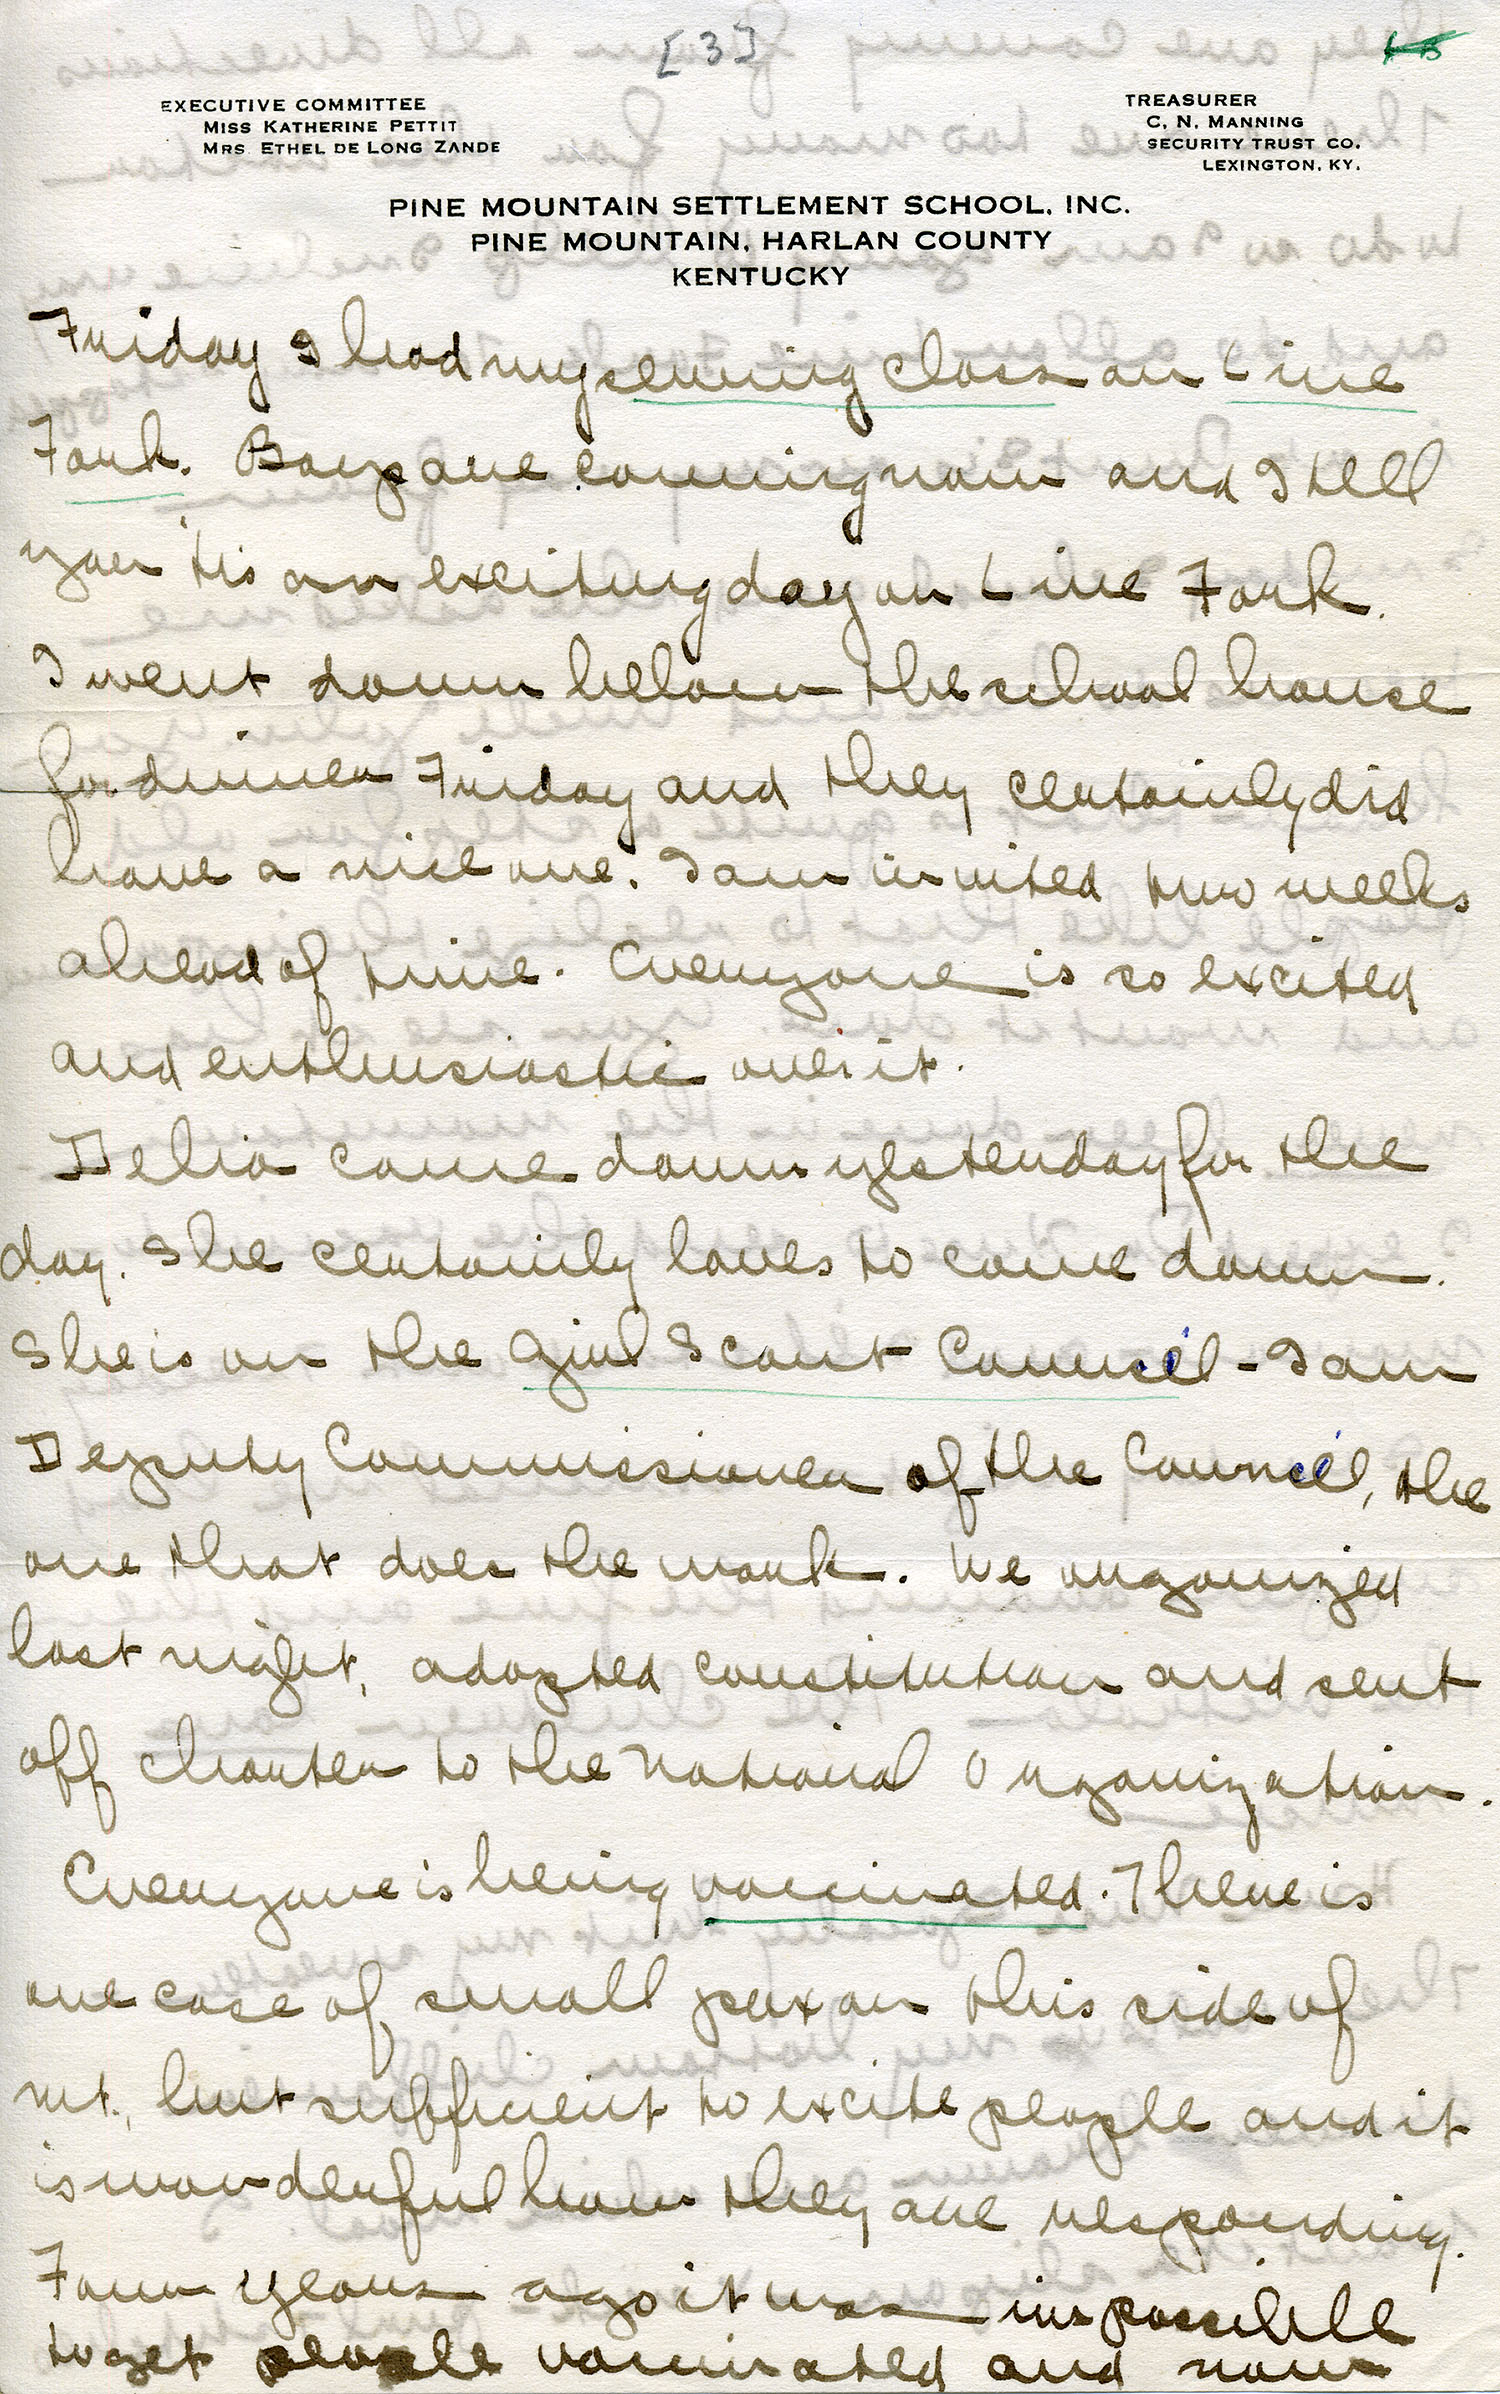 [3]
EXECUTIVE COMMITTEE
MISS KATHERINE PETTIT
MRS. ETHEL DE LONG ZANDE
TREASURER
C. N. MANNING
SECURITY TRUST CO.
LEXINGTON, KY.
PINE MOUNTAIN SETTLEMENT SCHOOL, INC.
PINE MOUNTAIN, HARLAN COUNTY
KENTUCKY
Friday I had my sewing class on Line
Fork. Boys are coming now and I tell
you 'tis an exciting day on Line Fork.
I went down below the school house
for dinner Friday and they certainly did
have a nice one. I am invited two weeks
ahead of time. Everyone is so excited
and enthusiastic over it.
Delia came down yesterday for the
day. She certainly loves to come down.
She is on the Girl Scout Council - I am
Deputy Commissioner of the Council, the
one that does the work. We organized
last night, adopted constitution and sent
off charter to the National Organization.
Everyone is being vaccinated. There is
one case of small pox on this side of
mt., but sufficient to excite people and it
is wonderful how they are responding.
Four years ago it was impossible
to get people vaccinated and now